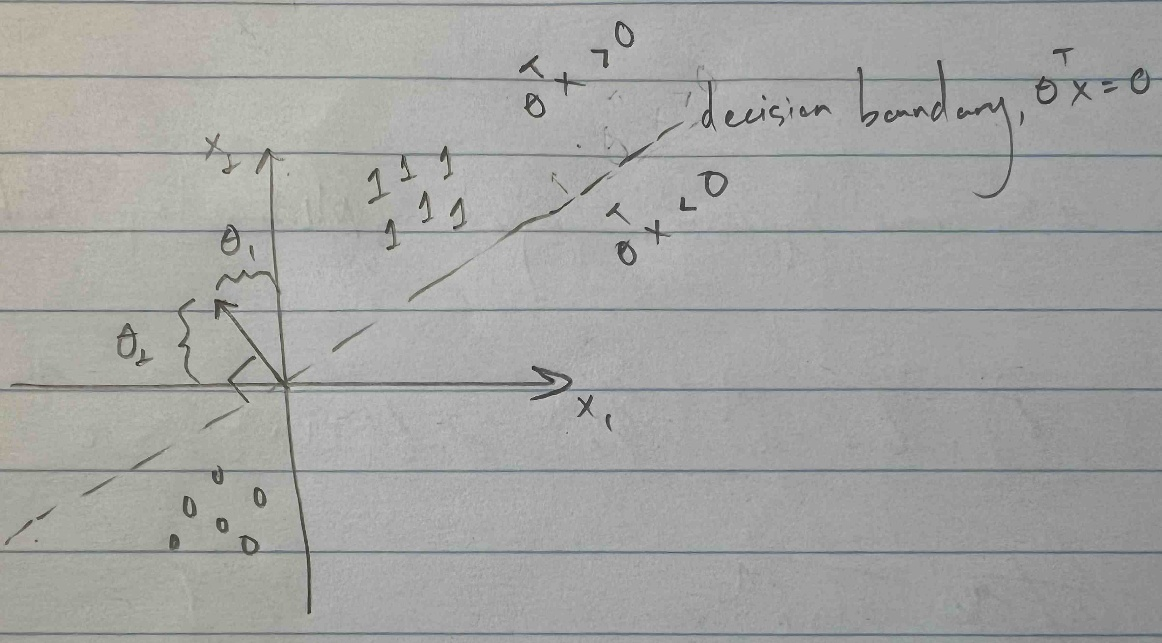 θᵀx > 0
decision boundary, θᵀx = 0
x₂
1 1 1
1 1 1
θᵀx < 0
θ₁
θ₂
x₁
0 0 0 0 0 0